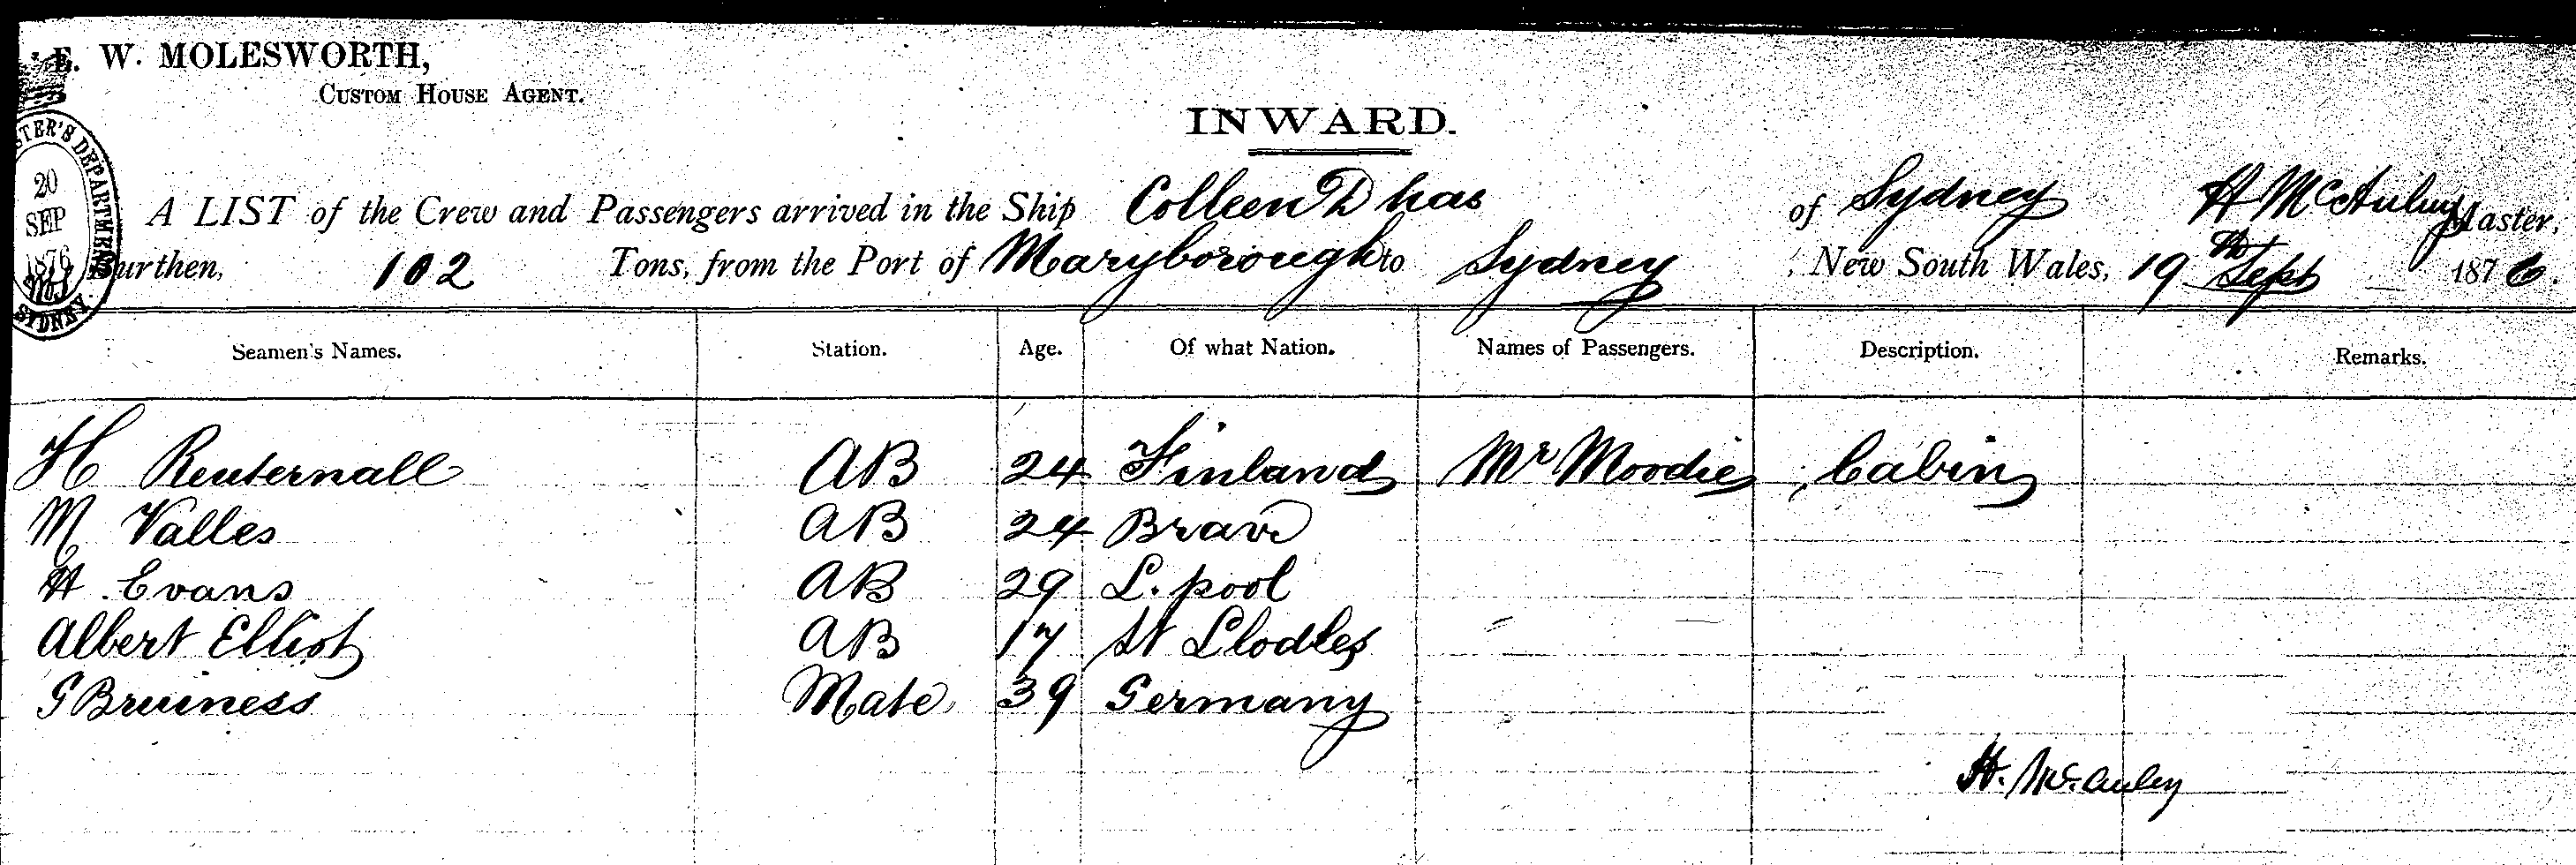 E. W. MOLESWORTH,
CUSTOM HOUSE AGENT.
INWARD.
A LIST of the Crew and Passengers arrived in the Ship Colleen Dhas of Sydney H McAuley Master,
Burthen, 102 Tons, from the Port of Maryborough to Sydney, New South Wales, 19th Sept 1876.
20
SEP
1876
SYDNEY
Seamen's Names. Station. Age. Of what Nation. Names of Passengers. Description. Remarks.
H Reuternall AB 24 Finland Mr Moodie Cabin
M Valles AB 24 Brava
H Evans AB 29 L.pool
Albert Elliot AB 17 St
G Bruiness Mate 39 Germany
H. McAuley